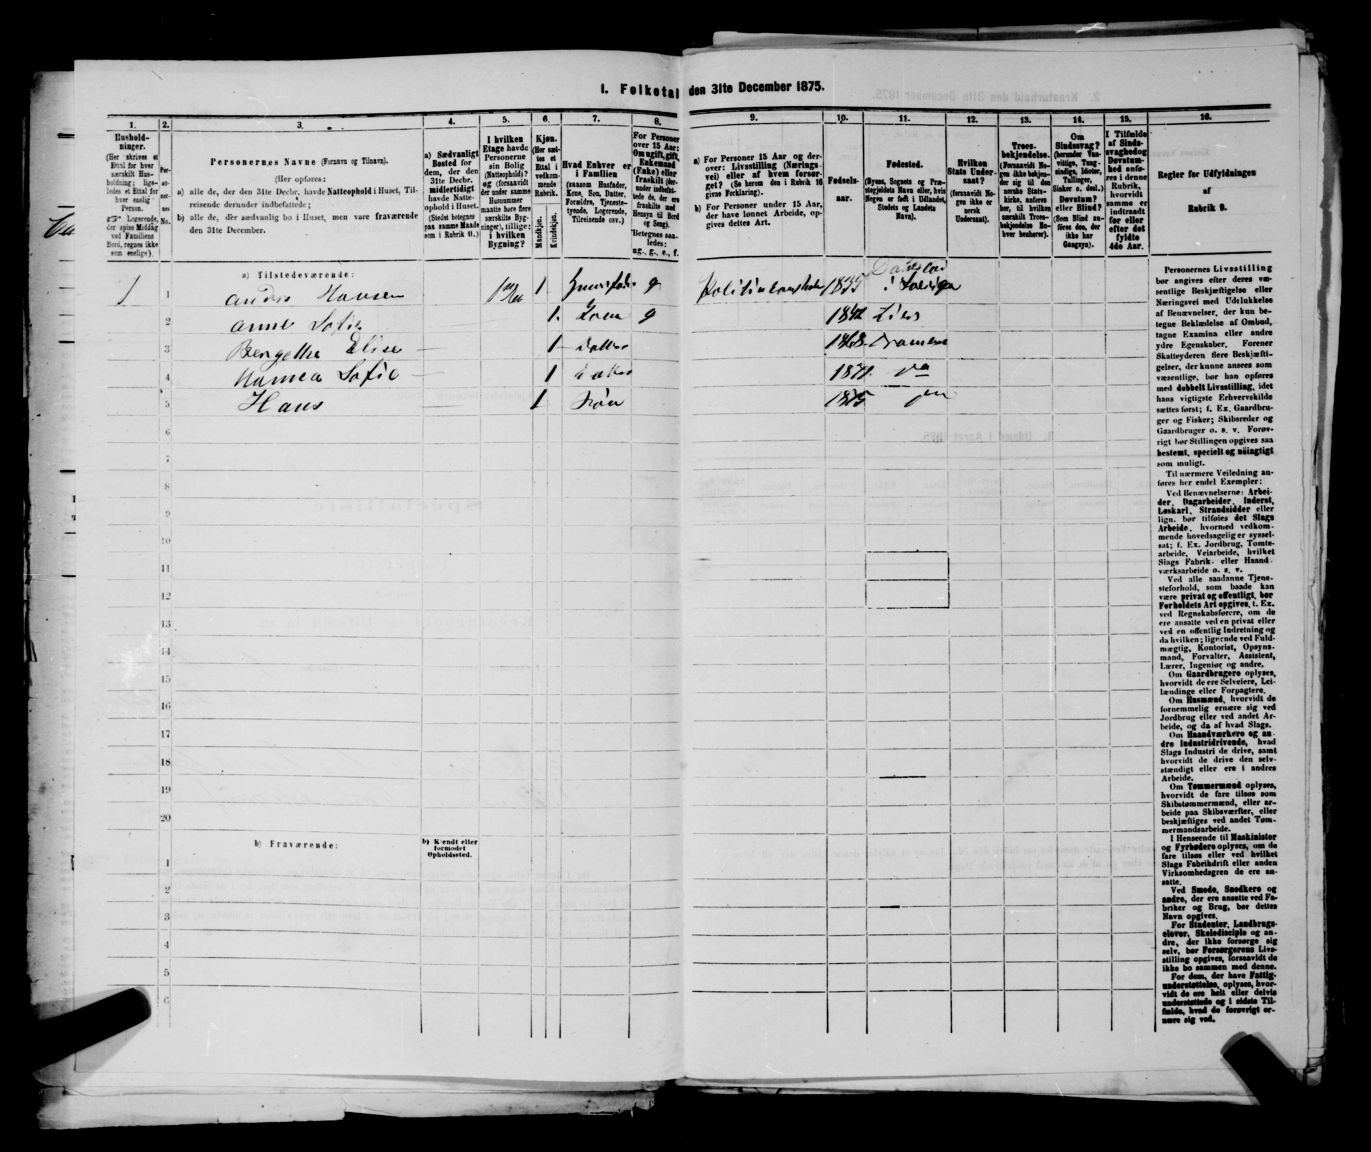 1. Folketal den 31te December 1875.
1. 2. 3. 4. 5. 6. 7. 8. 9. 10. 11. 12. 13. 14. 15. 16.
Hushold-
ninger.
(Her skrives et
Ettal for hver
særskilt Hus-
holdning; lige-
ledes et Ettal for
hver enslig
Person.
Logerende,
der spise Middag
ved Familiens
Bord, regnes ikke
som enslige).
Per-
so-
ner-
nes
No.
Personernes Navne (Fornavn og Tilnavn).
(Her opføres:
a) alle de, der den 31te Decbr. havde Natteophold i Huset, Til-
reisende derunder indbefattede;
b) alle de, der sædvanlig bo i Huset, men vare fraværende
den 31te December.
a) Sædvanligt
Bosted for
dem, der den
31te Decbr.
midlertidigt
havde Natte-
ophold i Huset.
(Stedet betegnes
paa samme Maade
som i Rubrik 11.)
I hvilken
Etage havde
Personerne
sin Bolig
(Natteophold)?
og (forsaavidt
der under samme
Husnummer
maatte høre flere
særskilte Byg-
ninger), tillige:
i hvilken
Bygning?
Kjøn.
(Her sæt-
tes et
Ettal i
vedkom-
mende
Rubrik.
Mandkjøn.
Kvindekjøn.
Hvad Enhver er
i Familien
(saasom Husfader,
Kone, Søn, Datter,
Forældre, Tjeneste-
tyende, Logerende,
Tilreisende osv.)
For Personer
over 15 Aar:
Om ugift, gift,
Enkemand
(Enke) eller
fraskilt (der-
under indbefat-
tede de, der ere
fraskilte med
Hensyn til Bord
og Seng).
Betegnes saa-
ledes:
ug., g., e., f.
a) For Personer 15 Aar og der-
over: Livsstilling (Nærings-
vei) eller af hvem forsør-
get? (Se herom den i Rubrik 16
givne Forklaring).
b) For Personer under 15 Aar,
der have lønnet Arbeide, op-
gives dettes Art.
Fødsels-
aar.
Fødested.
(Byens, Sognets og Præ-
stegjeldets Navn eller, hvis
Nogen er født i Udlandet,
Stedets og Landets
Navn).
Hvilken
Stats Under-
saat?
(forsaavidt No-
gen ikke er
norsk
Undersaat).
Troes-
bekjendelse.
(Forsaavidt No-
gen ikke bekjen-
der sig til den
norske Stats-
kirke, anføres
her, til hvilken
særskilt Troes-
bekjendelse En-
hver henhører).
Om
Sindssvag?
(herunder Van-
vittige, Tung-
sindige, Idioter,
Tullinger,
Sinker o. desl.)
Døvstum?
eller Blind?
(Som Blind an-
føres den, der
ikke har
Gangsyn).
I Tilfælde
af Sinds-
svaghed og
Døvstum-
hed anfø-
res i denne
Rubrik,
hvorvidt
samme er
indtraadt
før eller
efter det
fyldte
4de Aar.
Regler for Udfyldningen
af
Rubrik 9.
a) Tilstedeværende:
1 1 Anders Hansen 1 1 g 1835
2 Anne Sofie 1 Kone g Lier
3 Elise 1 Datter 1868 Drammen
4 Sofie 1 Datter 1871
5 Hans 1 Søn 1875
6
7
8
9
10
11
12
13
14
15
16
17
18
19
20
b) Fraværende:
b) Kjendt eller
formodet
Opholdssted.
1
2
3
4
5
6
Personernes Livsstilling
bør angives efter deres væ-
sentlige Beskjæftigelse eller
Næringsvei med Udelukkelse
af Benævnelser, der kun be-
tegne Beklædelse af Ombud,
tagne Examina eller andre
ydre Egenskaber. Forener
Skatteyderen flere Beskjæfti-
gelser, der kunne ansees som
væsentlige, bør han opføres
med dobbelt Livsstilling, idet
hans vigtigste Erhvervskilde
sættes først; f. Ex. Gaardbru-
ger og Fisker; Skibsreder og
Gaardbruger o. s. v. Forøv-
rigt bør Stillingen opgives saa
bestemt, specielt og nøiagtigt
som muligt.
Til nærmere Veiledning an-
føres her endel Exempler:
Ved Benævnelserne: Arbei-
der, Dagarbeider, Inderst,
Løskarl, Strandsidder eller
lign. bør tilføies det Slags
Arbeide, hvormed vedkom-
mende hovedsagelig er syssel-
sat; f. Ex. Jordbrug, Tomte-
arbeide, Veiarbeide, hvilket
Slags Fabrik- eller Haand-
værksarbeide o. s. v.
Ved alle saadanne Tjene-
steforhold, som baade kan
være privat og offentligt, bør
Forholdets Art opgives, t. Ex.
ved Regnskabsførere, om de
ere ansatte ved en privat eller
ved en offentlig Indretning og
da hvilken; lignende ved Fuld-
mægtig, Kontorist, Opsyns-
mand, Forvalter, Assistent,
Lærer, Ingeniør og andre.
Om Gaardbrugere oplyses,
hvorvidt de ere Selveiere, Lei-
lændinge eller Forpagtere.
Om Husmænd, hvorvidt de
fornemmelig ernære sig ved
Jordbrug eller ved andet Ar-
beide, og da af hvad Slags.
Om Haandværkere og an-
dre Industridrivende, hvad
Slags Industri de drive, samt
hvorvidt de drive den selv-
stændigt eller ere i andres
Arbeide.
Om Tømmermænd oplyses,
hvorvidt de fare tilsøs som
Skibstømmermænd, eller ar-
beide paa Skibsværfter, eller
beskjæftiges ved andet Tøm-
mermandsarbeide.
I Henseende til Maskinister
og Fyrbødere oplyses, om de
fare tilsøs eller ved hvilket
Slags Fabrikdrift eller anden
Virksomhedsgren de ere an-
satte.
Ved Smede, Snedkere og
andre, der ere ansatte ved Fa-
briker og Brug, bør dettes
Navn opgives.
For Studenter, Landbrugs-
elever, Skoledisciple og an-
dre, der ikke forsørge sig
selv, bør Forsørgerens Livs-
stilling opgives, forsaavidt de
ikke bo sammen med denne.
For dem, der have Fattig-
understøttelse, oplyses, hvor-
vidt de ere helt eller delvis
understøttede og i sidste Til-
fælde, hvad de forøvrigt er-
nære sig ved.